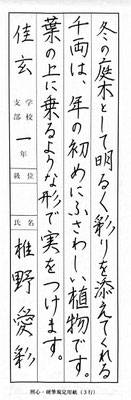 冬の庭木として明るく彩りを添えてくれる
千両は、年の初めにふさわしい植物です。
葉の上に乗るような形で実をつけます。
佳玄
学校
支部
一年
級位
氏名
椎野愛彩
硯心・硬筆規定用紙(3行)